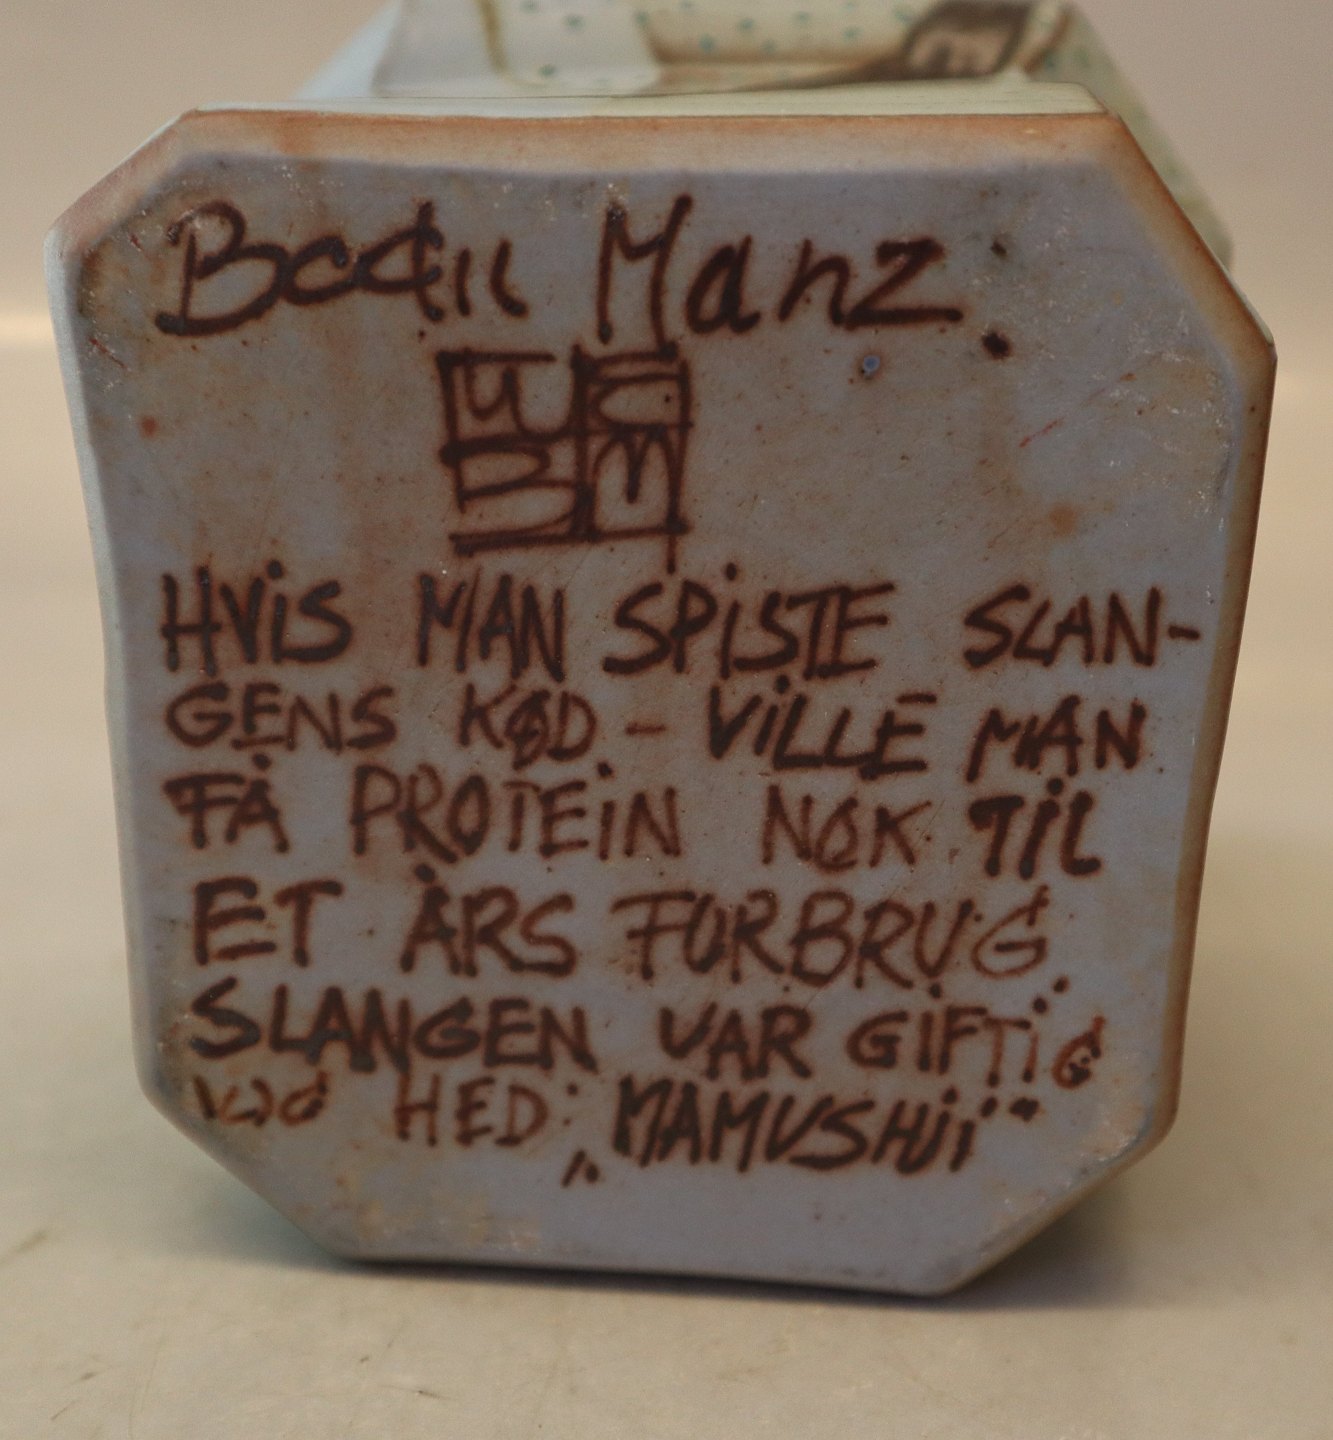 Bodil Manz
HVIS MAN SPISTE SLAN-
GENS KØD - VILLE MAN
FÅ PROTEIN NOK TIL
ET ÅRS FORBRUG
SLANGEN VAR GIFTIG
HED: „MAMUSHII"